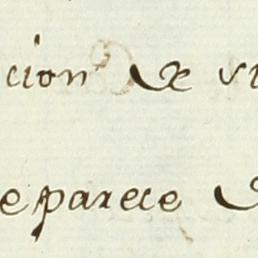 cion de vi
e parece de